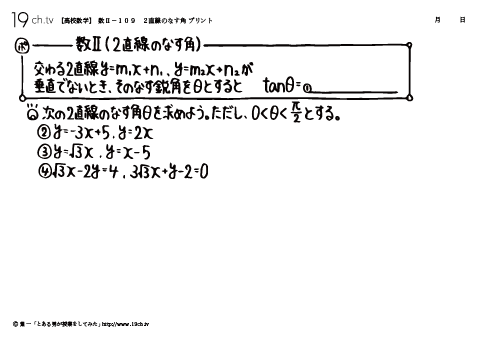 19ch.tv 【高校数学】 数Ⅱ−１０９ ２直線のなす角 プリント 月 日
ポ 数Ⅱ(2直線のなす角)
交わる2直線y=m₁x+n₁、y=m₂x+n₂が
垂直でないとき、そのなす鋭角をθとすると tanθ=①
次の2直線のなす角θを求めよう。ただし、0<θ<π/2とする。
②y=-3x+5, y=2x
③y=√3x, y=x-5
④√3x-2y=4, 3√3x+y-2=0
© 葉一「とある男が授業をしてみた」http://www.19ch.tv